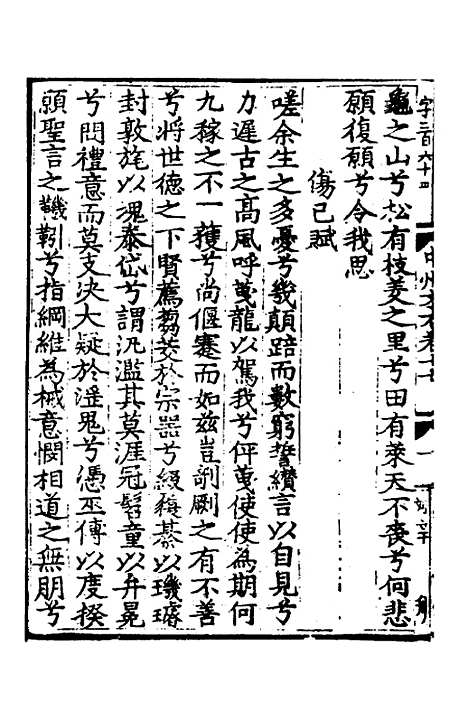 字二百六十四
中州文
龜之山兮松有枝美之里兮田有萊天不喪兮何悲
願復願兮令我思
傷己賦
嗟余生之多憂兮幾顛踣而數窮誓纘言以自見兮
力遲古之高風呼蒐龍以駕我兮伻蒐使使為期何
九稼之不一穫兮尚偃蹇而如兹豈剞劂之有不善
兮將世德之下賢薦芻茭於宗器兮綴綦以璣璿
封敦旄以塊泰岱兮謂汎濫其莫涯冠髫童以弁冕
兮問禮意而莫支决大疑於滛鬼兮憑巫傳以度揆
頋聖言之鞿靷兮指綱維為械意憫相道之無朋兮